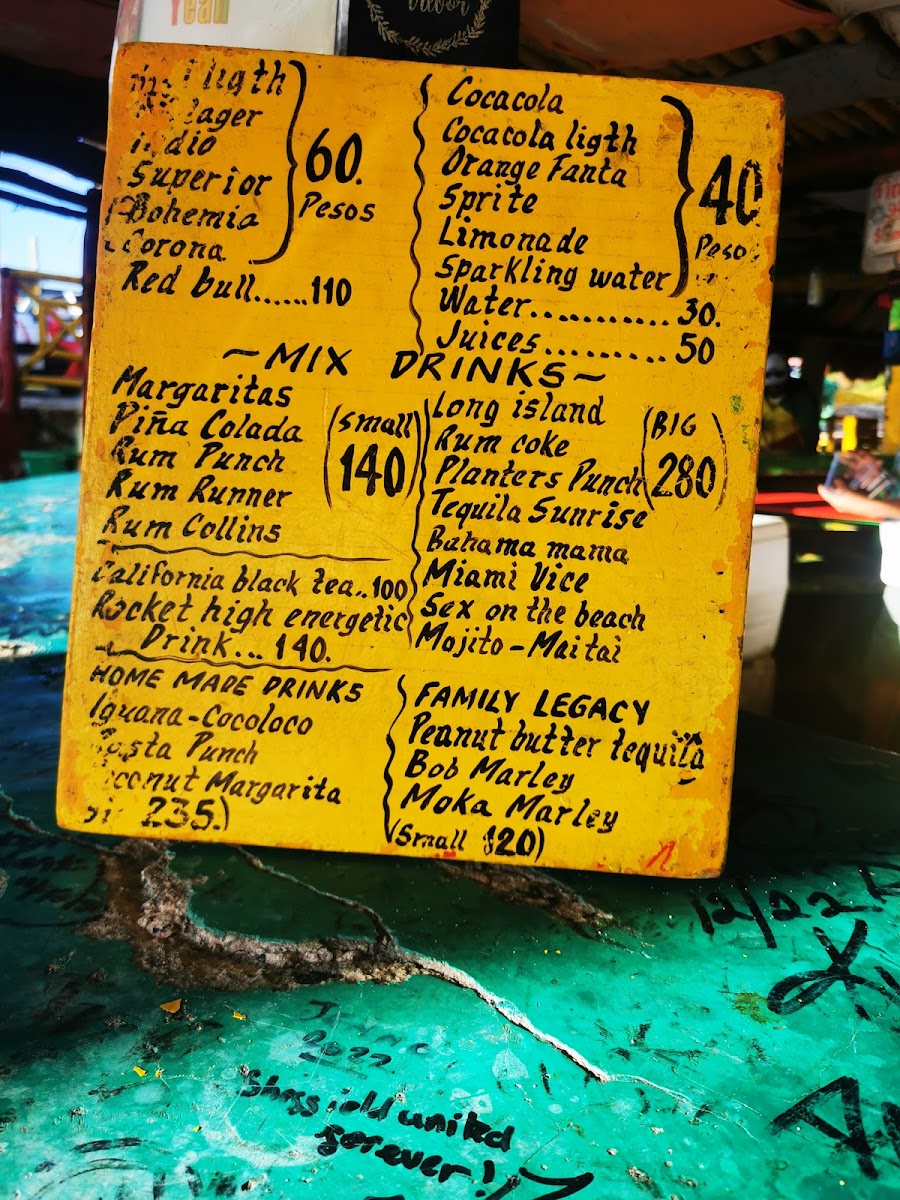 Yeah
ligth
lager
indio
Superior
Bohemia
Corona
60.
Pesos
Red bull......110
Cocacola
Cocacola ligth
Orange Fanta
Sprite
Limonade
Sparkling water
40
Peso
Water............30.
Juices..........50
~MIX DRINKS~
Margaritas
Piña Colada
Rum Punch
Rum Runner
Rum Collins
(small)
140
Long island
Rum coke
Planters Punch
Tequila Sunrise
Bahama mama
Miami Vice
Sex on the beach
Mojito-Maitai
(BIG
280)
California black tea..100
Rocket high energetic
Drink...140.
HOME MADE DRINKS
Iguana-Cocoloco
Punch
Coconut Margarita
235.)
FAMILY LEGACY
Peanut butter tequila
Bob Marley
Moka Marley
(Small 120)
12/22
2022
united
forever!